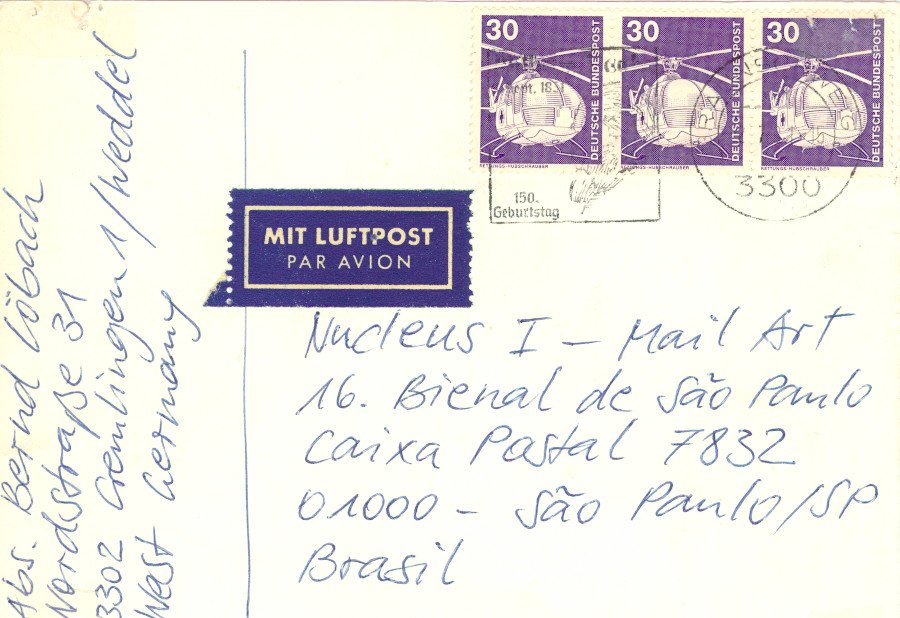 30
DEUTSCHE BUNDESPOST
RETTUNGS-HUBSCHRAUBER
30
DEUTSCHE BUNDESPOST
RETTUNGS-HUBSCHRAUBER
30
DEUTSCHE BUNDESPOST
RETTUNGS-HUBSCHRAUBER
150.
Geburtstag
3300
MIT LUFTPOST
PAR AVION
Abs. Bernd Löbach
Nordstraße 31
3302 Cremlingen 1/Weddel
West Germany
Nucleus I – Mail Art
16. Bienal de São Paulo
Caixa Postal 7832
01000 – São Paulo/SP
Brasil